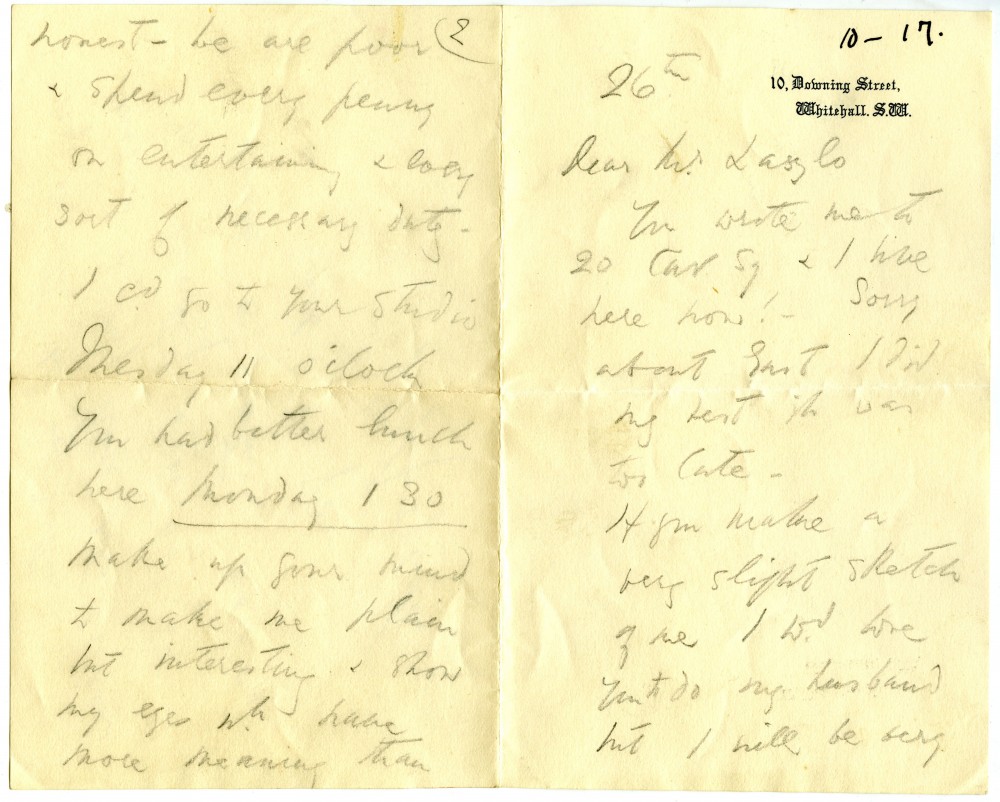 10-17.
26th
10, Downing Street,
Whitehall. S.W.
Dear Mr. Laszlo
You wrote me to
20 Cav Sq & I live
here now! - Sorry
about East I did
my best it was
too late -
If you make a
very slight sketch
of me I wd. love
you to do my husband
but I will be very
2
honest - we are poor
& spend every penny
on entertaining & every
sort of necessary duty -
I cd go to your studio
Tuesday 11 o'clock
You had better lunch
here Monday 1 30
Make up your mind
to make me plain
but interesting & show
my eyes wh have
more meaning than